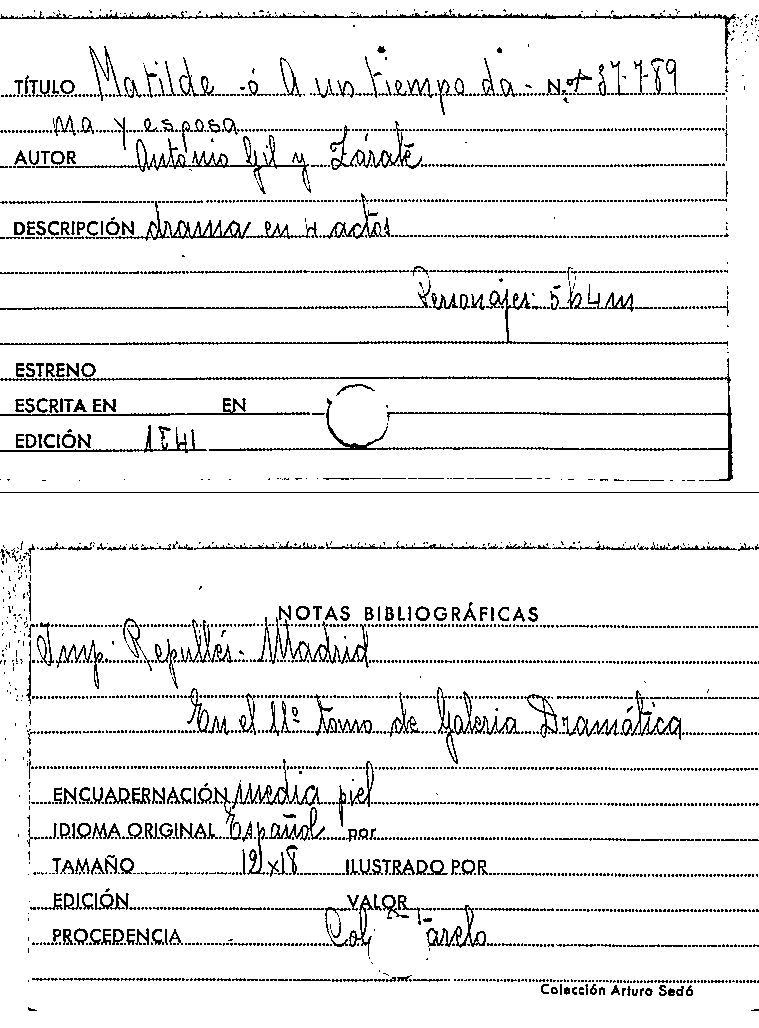 TÍTULO Matilde -ó A un tiempo da- N.º 37-789
ma y esposa
AUTOR Antonio Gil y Zárate
DESCRIPCIÓN drama en 4 actos
Personajes: 5 h 4 m
ESTRENO
ESCRITA EN EN
EDICIÓN 1841
NOTAS BIBLIOGRÁFICAS
Imp. Repullés. Madrid
En el 11º tomo de Galeria Dramática
ENCUADERNACIÓN media piel
IDIOMA ORIGINAL Español por
TAMAÑO 12x18 ILUSTRADO POR
EDICIÓN VALOR
PROCEDENCIA Col
Colección Arturo Sedó